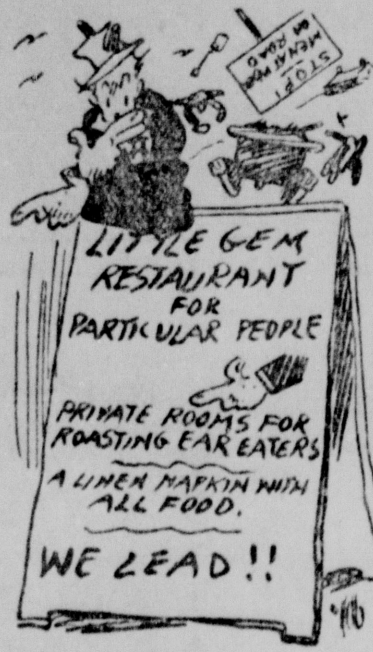 STOP!
MEN AT WORK
ON ROAD
LITTLE GEM
RESTAURANT
FOR
PARTICULAR PEOPLE
PRIVATE ROOMS FOR
ROASTING EAR EATERS
A LINEN NAPKIN WITH
ALL FOOD.
WE LEAD!!